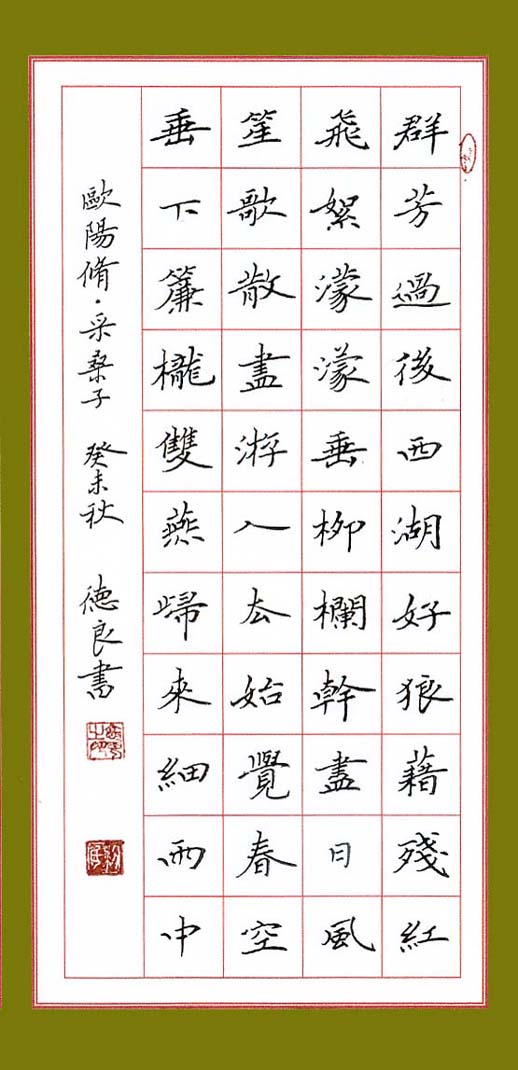 群芳過後西湖好狼藉殘紅
飛絮濛濛垂柳欄幹盡日風
笙歌散盡游人去始覺春空
垂下簾櫳雙燕歸來細雨中
歐陽脩·采桑子 癸未秋 德良書